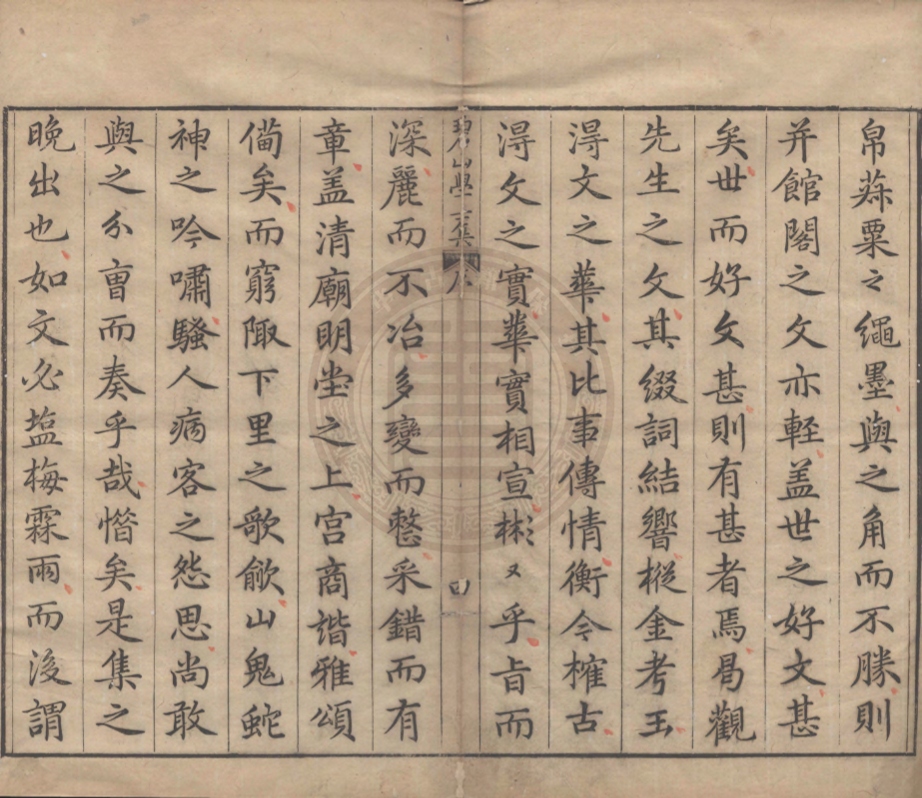 帛蔴粟之繩墨與之角而不勝則
并館閣之文亦輕蓋世之好文甚
矣世而好文甚則有甚者焉曷觀
先生之文其綴詞結響樅金考玉
淂文之華其比事傳情衡今榷古
淂文之實華實相宣彬〻乎旨而
碧山學士集 序 四
深麗而不冶多變而整采錯而有
章蓋清廟明堂之上宮商諧雅頌
備矣而窮陬下里之歌飲山鬼蛇
神之吟嘯騷人病客之怨思尚敢
與之分曹而奏乎哉憯矣是集之
晚出也如文必塩梅霖雨而後謂